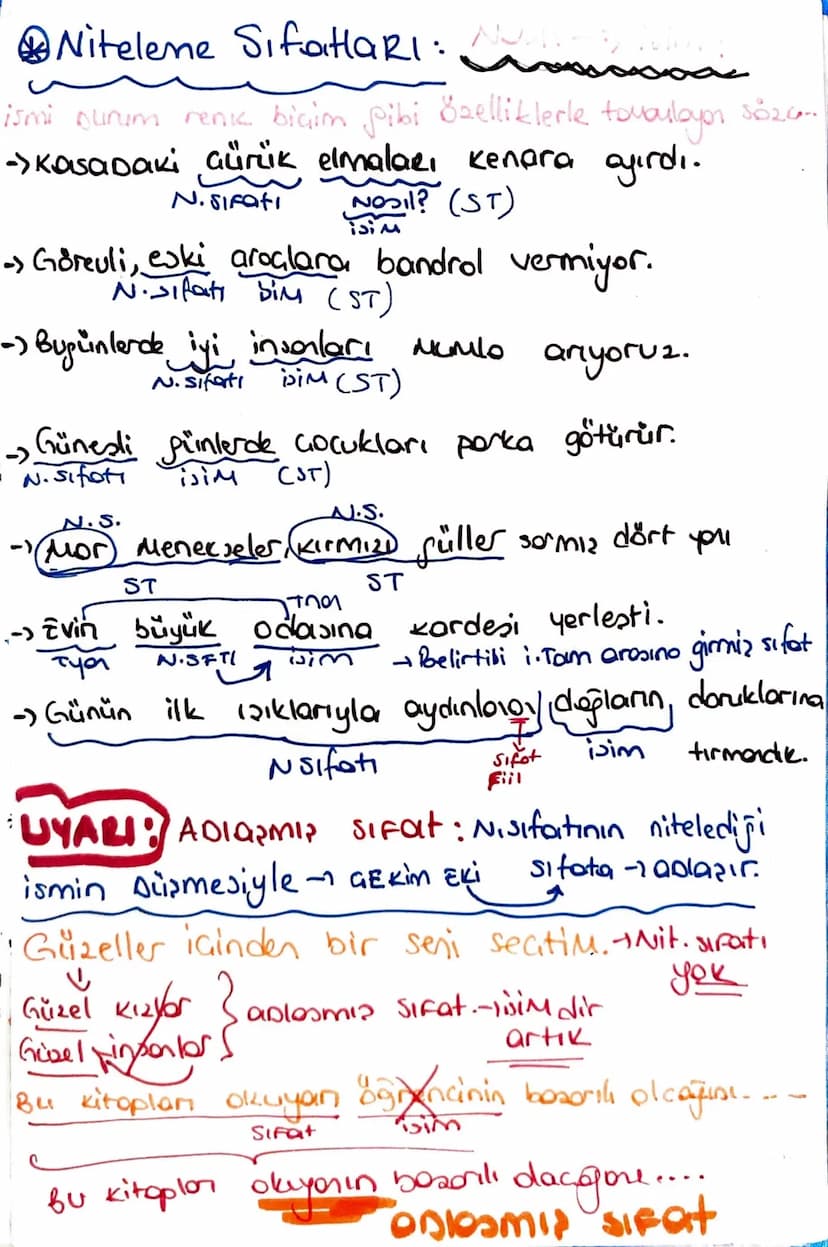 Niteleme Sıfatları:
ismi durum renk biçim gibi özelliklerle tamamlayan sözc...
-> Kasadaki çürük elmaları kenara ayırdı.
N. sıfatı Nasıl? (ST)
isim
-> Görevli, eski araçlara bandrol vermiyor.
N. sıfatı isim (ST)
-> Bugünlerde iyi insanları mumla arıyoruz.
N. sıfatı isim (ST)
-> Güneşli günlerde çocukları parka götürür.
N. sıfatı isim (ST)
N.S. N.S.
-> Mor menekşeler, kırmızı güller sarmış dört yanı
ST ST
Tnan
-> Evin büyük odasına kardeşi yerleşti.
Tyan N.SFTI isim -> Belirtili i. Tam arasına girmiş sıfat
-> Günün ilk ışıklarıyla aydınlanan dağların doruklarına
N sıfatı sıfat isim tırmandık.
Fiil
UYARI: Adlaşmış sıfat: N. sıfatının nitelediği
ismin düşmesiyle -> çekim eki sıfata -> adlaşır.
Güzeller içinden bir seni seçtim. -> Nit. sıfatı
yok
Güzel kızlar } adlaşmış sıfat. -> isimdir
Güzel insanlar artık
Bu kitapları okuyan öğrencinin başarılı olcağını....
sıfat isim
Bu kitapları okuyanın başarılı olacağını....
adlaşmış sıfat